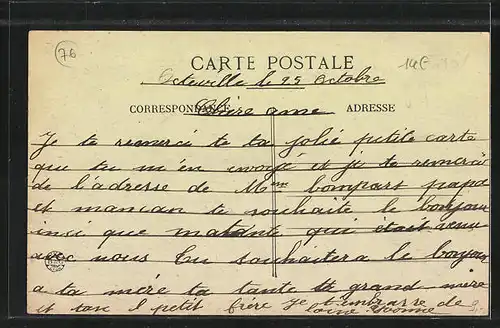 76
14€
CARTE POSTALE
Octeville le 25 Octobre
CORRESPONDANCE
ADRESSE
Chère amie
Je te remerci te ta jolié petite carte
que tu m'en envoyé et je te remerci
de l'adresse de Mme bompart papa
et mancan te souhaite le bonjour
inci que matante qui était venu
avec nous tu souhaitera le bonjour
a ta mére ta tante ta grand mére
et ton petit frére Je t'embrasse de
Yvonne